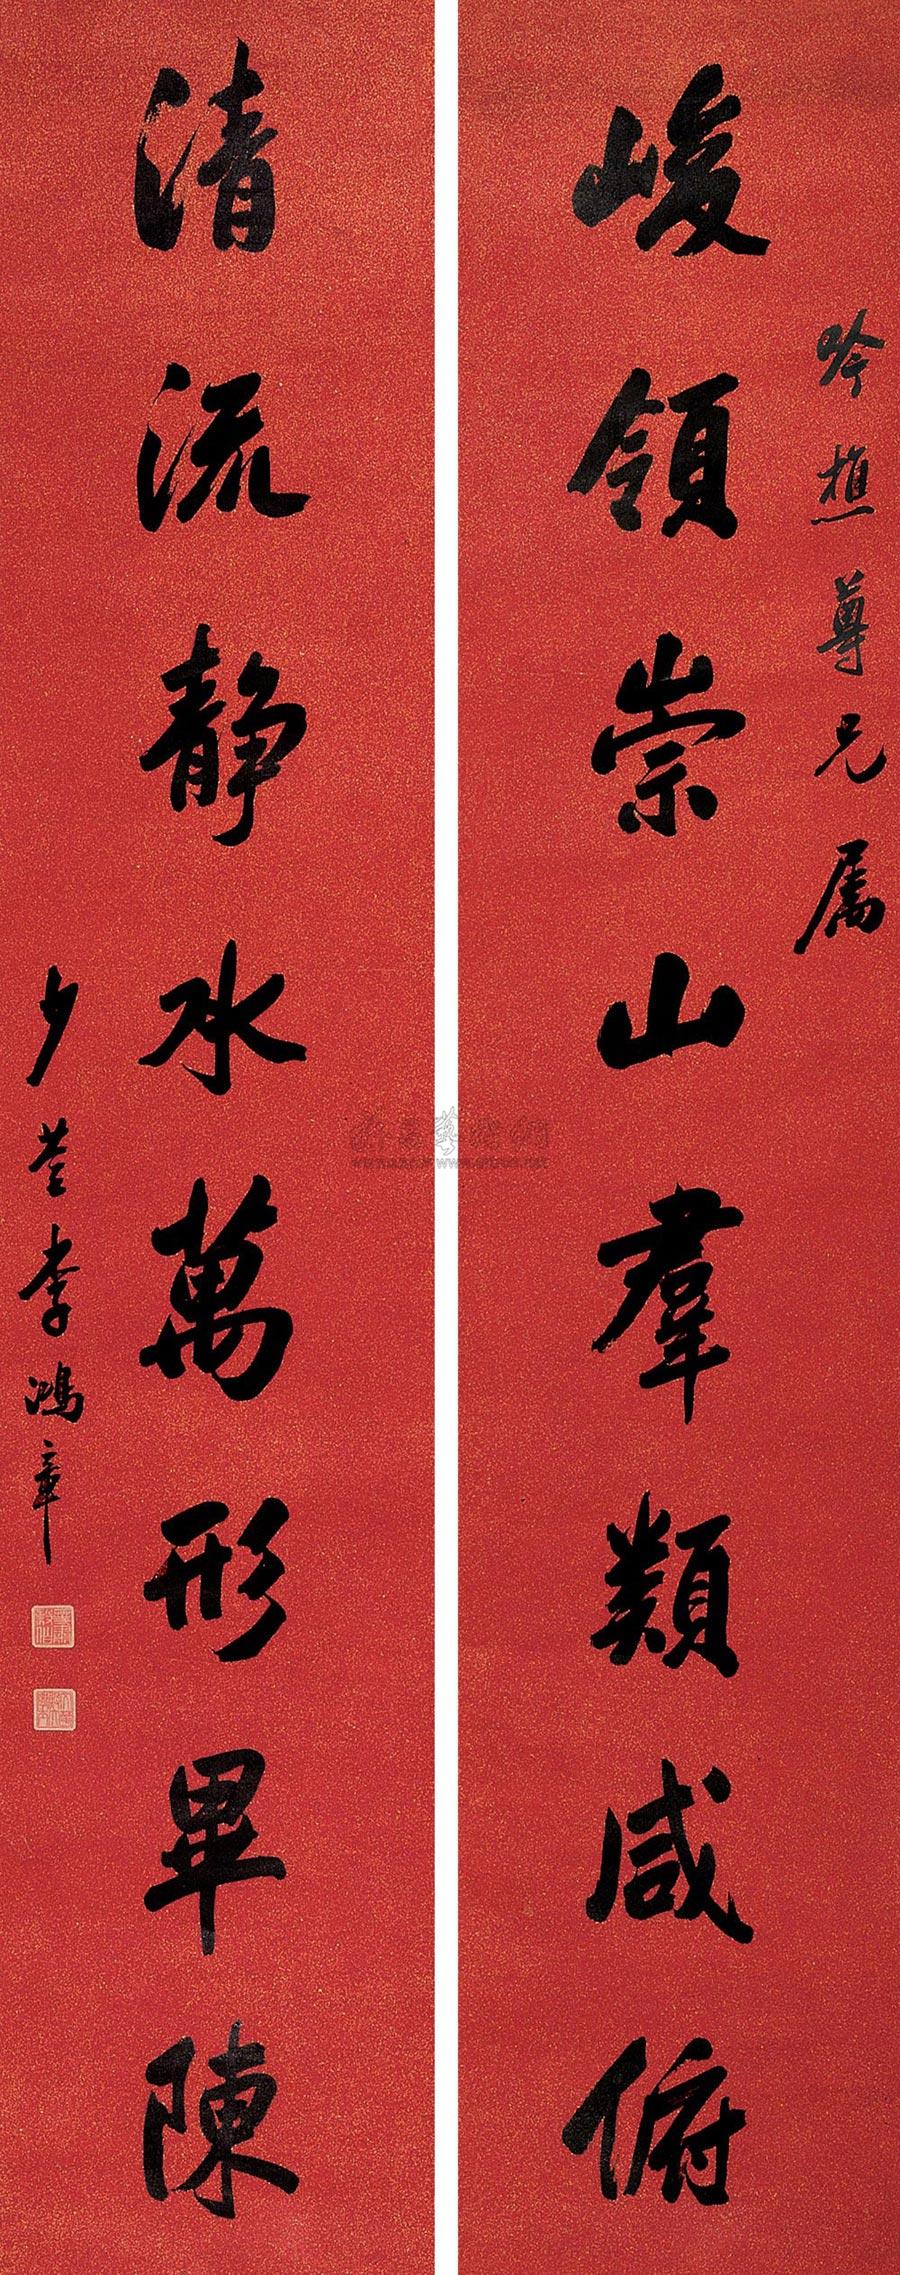 吟樵尊兄属
峻領崇山羣類咸俯
清流静水萬形畢陳
少荃李鴻章